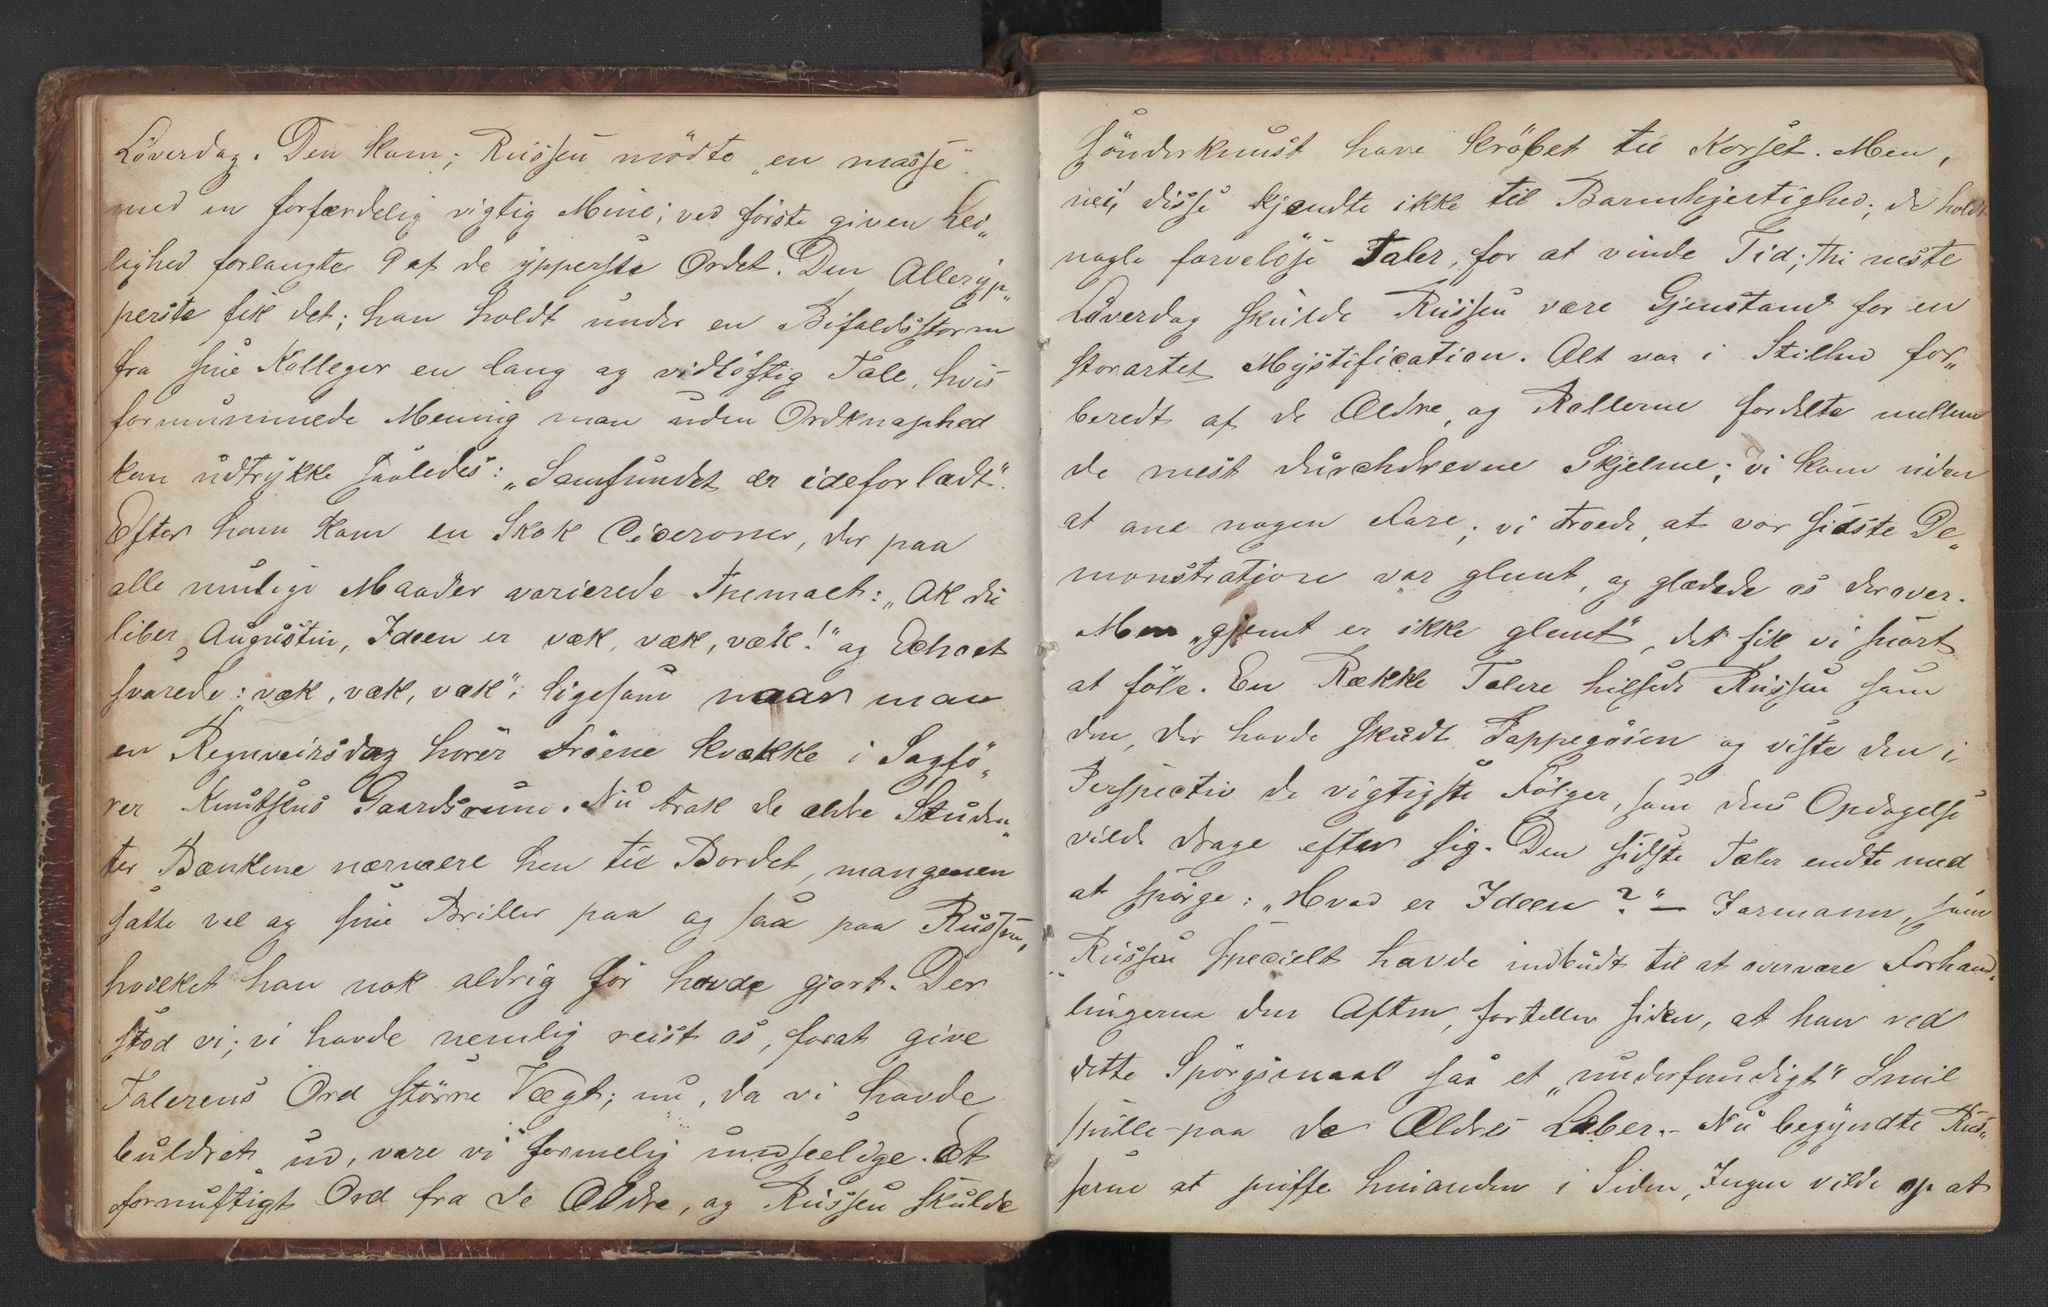 Löverdag. Den kom; Russen mödte "en masse"
med en forfærdelig vigtig Mine; ved første given Lei„
lighed forlangte 9 af de ypperste Ordet. Den Alleryp„
perste fik det; han holdt under en Bifaldsstorm
fra sine Kolleger en lang og vidlöftig Tale, hvis
formummede Mening man uden Ordknaphed
kan udtrykke saaledes: „Samfundet er ideforladt".
Efter ham kom en Skok Ciceroner, der paa
alle mulige Maader varierede Themaet: „Ak du
liber Augustin, Ideen er væk, væk, væk!" og Echoet
svarede: „væk, væk, væk"; ligesom naar man
en Regnveirsdag hører Fröene kvække i Sagfö„
rer Knutsens Gaardsrum. Nu trak de ældre Studen„
ter Bænkene nærmere hen til Bordet, mangenen
satte vel og sine Briller paa og saa paa Russen,
hvilket han nok aldrig för havde gjort. Der
stod vi; vi havde nemlig reist os, forat give
Talerens Ord större Vægt; nu, da vi havde
buldret ud, vare vi formelig undseelige. Et
fornuftigt Ord fra de Ældre, og Russen skulde
sönderknust have kröbet til Korset. Men,
nei, disse kjendte ikke til Barmhjertighed; de holdt
nogle farvelöse Taler, for at vinde Tid; thi neste
Löverdag skulde Russen være Gjenstand for en
storartet Mystification. Alt var i Stilhed for„
beredt af de Ældre, og Rollerne fordelte mellem
de mest durchdrevne Skjelme; vi kom uden
at ane nogen Fare; vi troede, at vor sidste De„
monstration var glemt, og glædede os derover.
Men „gjemt er ikke glemt", det fik vi snart
at föle. En Række Talere hilsede Russen som
den, der havde skudt Pappegöien og viste den i
Perspectiv de vigtigste Fölger, som dens Opdagelse
vilde drage efter sig. Den sidste Taler endte med
at spörge: „Hvad er Ideen?" — Jarmann, som
Russen specielt havde indbudt til at overvære Forhand„
lingerne den Aften, forteller siden, at han ved
dette Spörgsmaal saa et „underfundigt" Smil
spille paa de Ældres Læber. – Nu begyndte Rus„
serne at puffe hinanden i Siden, Ingen vilde op at